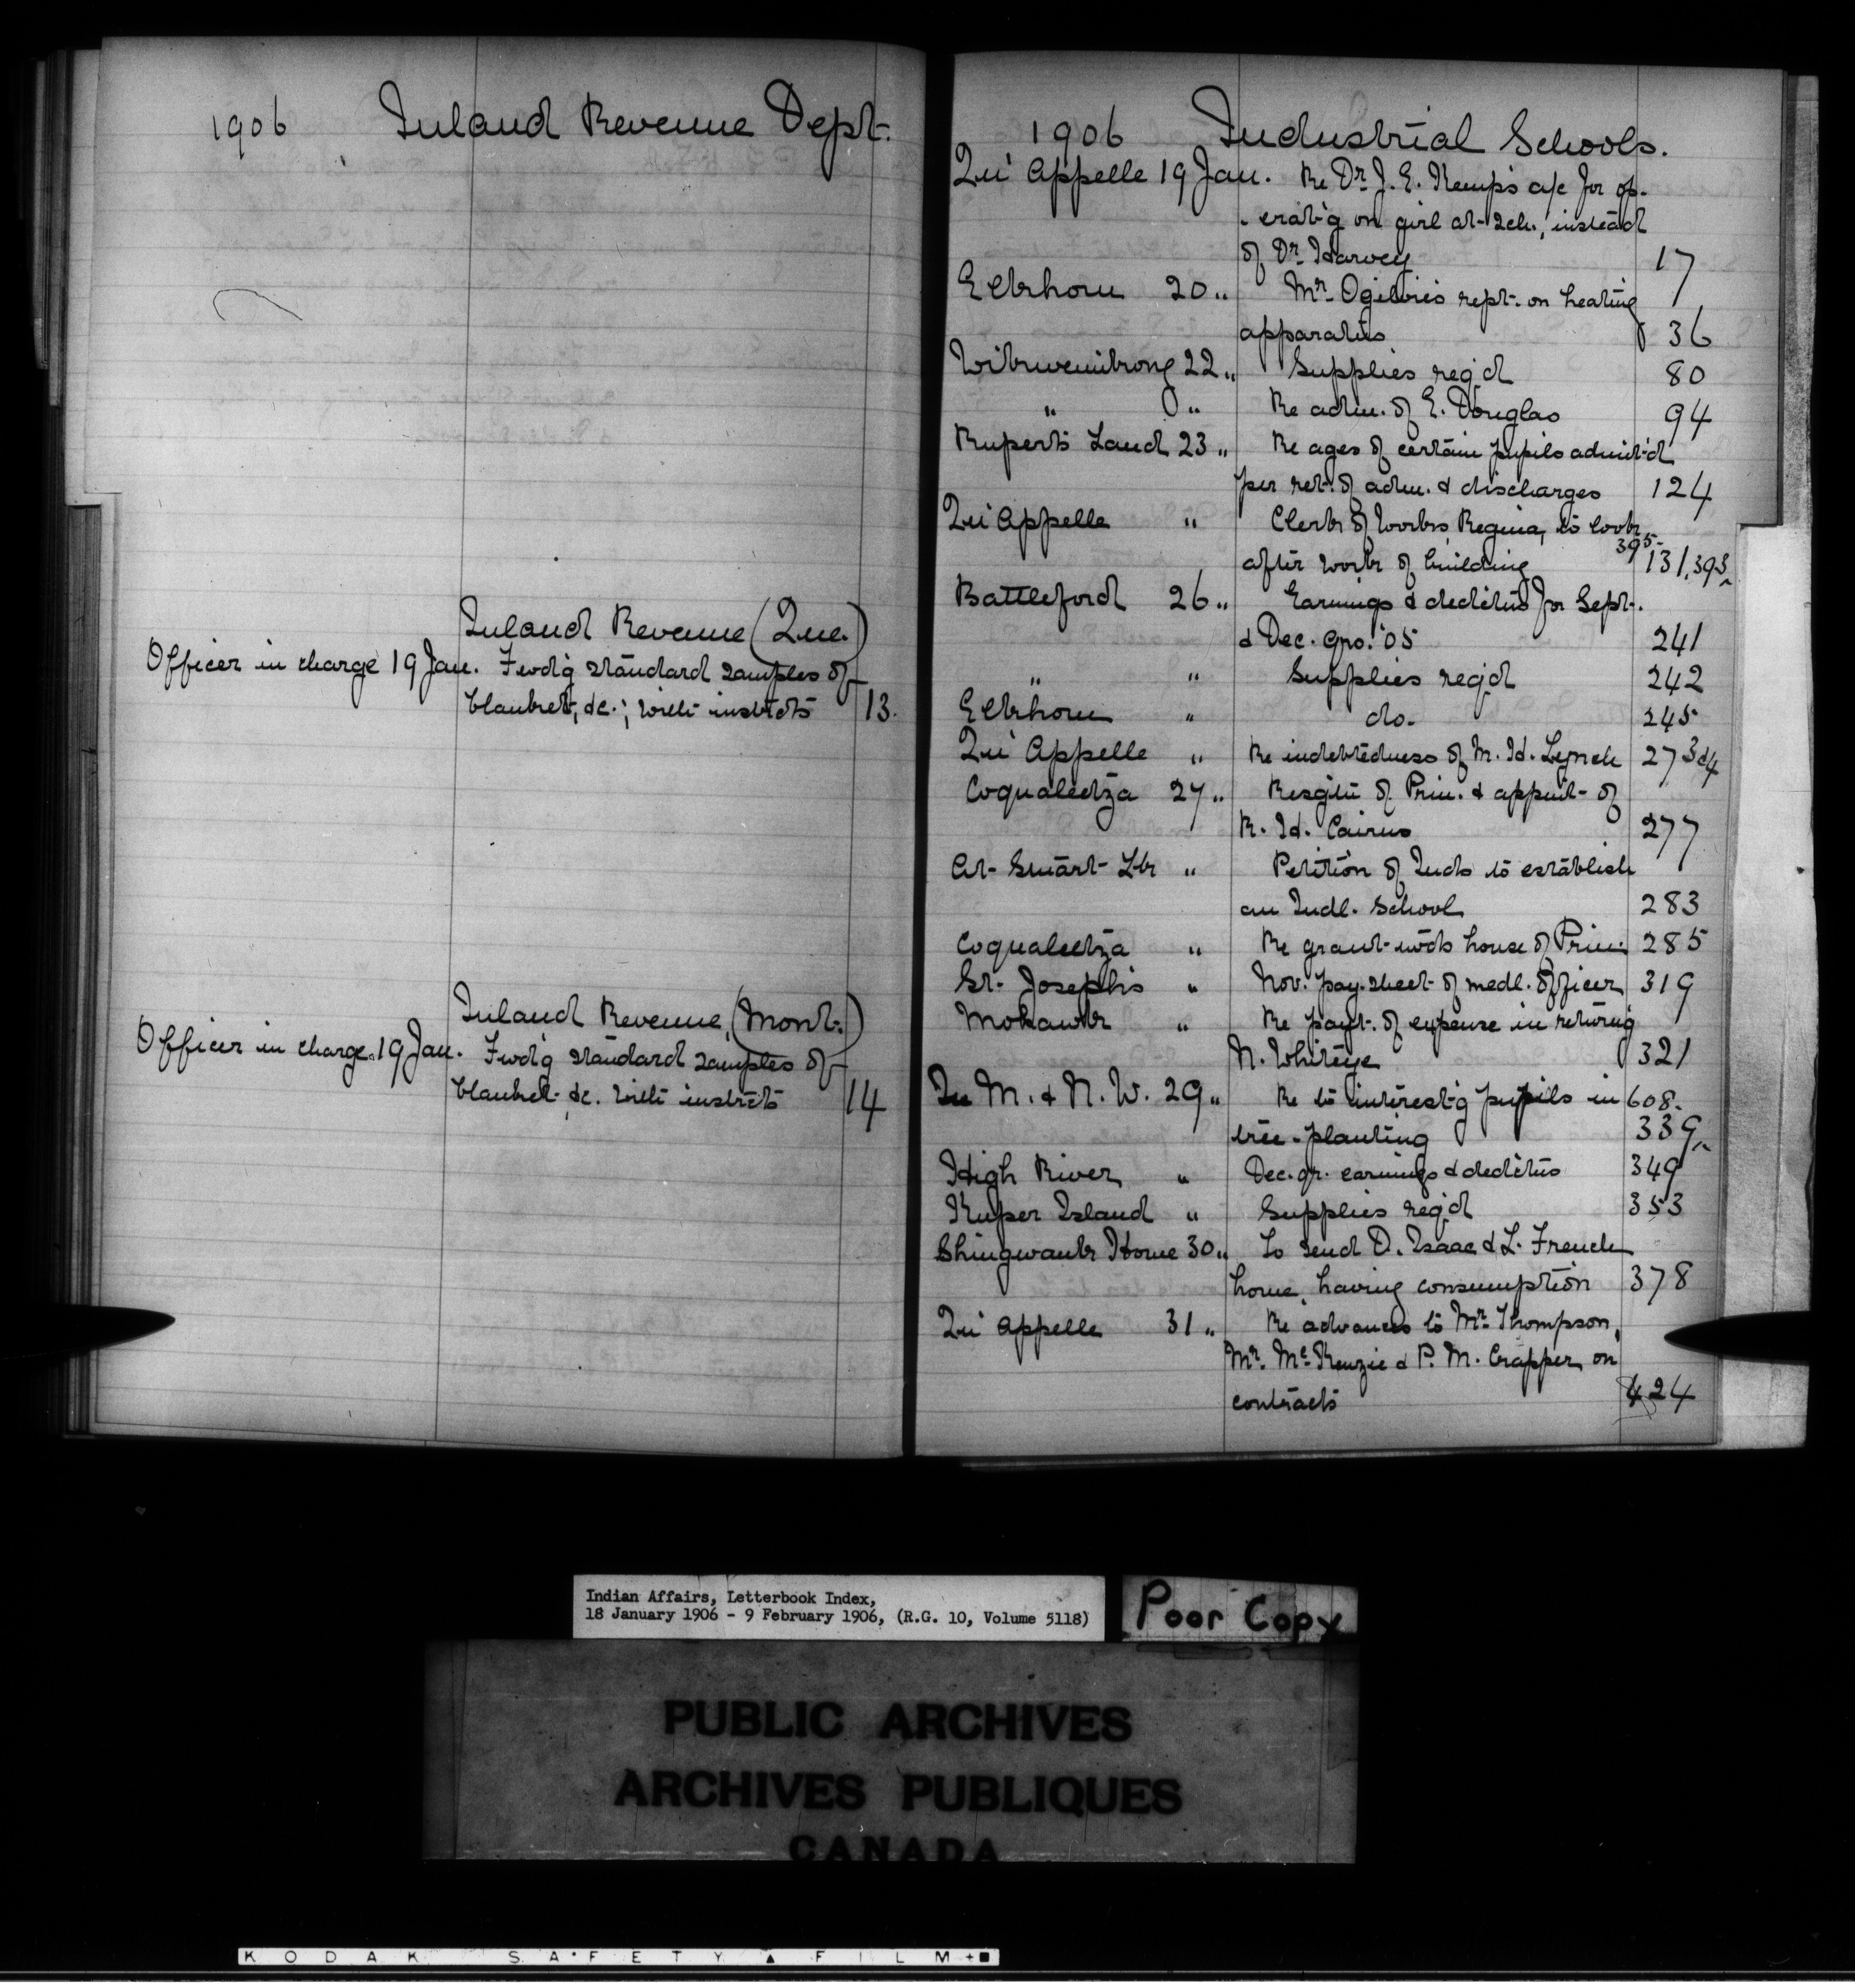 1906 Inland Revenue Dept.
Inland Revenue (Que.)
Officer in charge 19 Jan. Fwd'g standard samples of
blanket, &c.; with instrcts 13.
Inland Revenue (Mont.)
Officer in charge 19 Jan. Fwd'g standard samples of
blanket &c. with instrcts 14
1906 Industrial Schools.
Qu'Appelle 19 Jan. Re Dr. J. E. Kemp's a/c for op-
-erat'g on girl at Sch., instead
of Dr. Harvey 17
Elkhorn 20 " Mr. Ogilvie's rept. on heating
apparatus 36
Wikwemikong 22 " Supplies req'd 80
" " Re adm. of E. Douglas 94
Ruperts Land 23 " Re ages of certain pupils admit'd
per ret. of adm. & discharges 124
Qu'Appelle " Clerk of Works Regina, to look
395
after work of building 131, 393
Battleford 26 " Earnings & dedctns for Sept.
& Dec. qrs. '05 241
" " Supplies req'd 242
Elkhorn " do. 245
Qu'Appelle " Re indebtedness of M. H. Lynch 273&4
Coqualeetza 27 " Resgtn of Prin. & appmt. of
R. H. Cairns 277
At Stuart Lk " Petition of Inds to establish
an Indl. School 283
Coqualeetza " Re grant twds house of Prin. 285
St. Joseph's " Nov. pay-sheet of medl. Officer 319
Mohawk " Re payt. of expense in return'g
N. Whiteye 321
In M. & N. W. 29 " Re to interest'g pupils in 608.
tree-planting 339
High River " Dec. qr. earnings & dedctns 349
Kuper Island " Supplies req'd 353
Shingwauk Home 30 " To send D. Isaac & L. French
home, having consumption 378
Qu'Appelle 31 " Re advances to Mr. Thompson,
Mr. McKenzie & P. M. Crapper, on
contracts 424
Indian Affairs, Letterbook Index,
18 January 1906 - 9 February 1906, (R.G. 10, Volume 5118)
Poor Copy
PUBLIC ARCHIVES
ARCHIVES PUBLIQUES
CANADA
KODAK SAFETY FILM